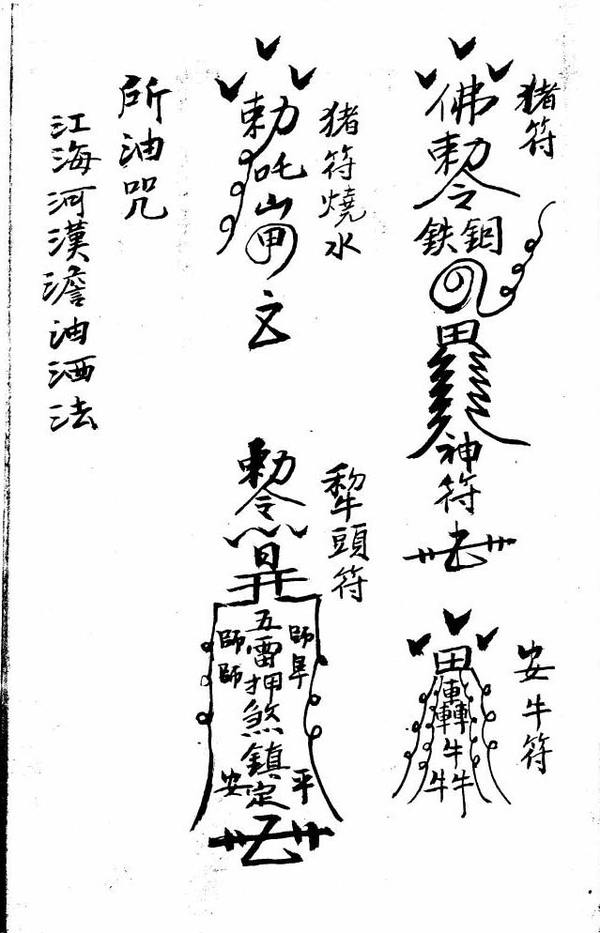 猪符
佛
勅令
鉄銅
田
神符
安牛符
田
轟
牛
牛牛
猪符燒水
勅
吒
山
犂頭符
勅令
五雷押煞鎮定
師師
安
平
所油咒
江海河漢澹油洒法